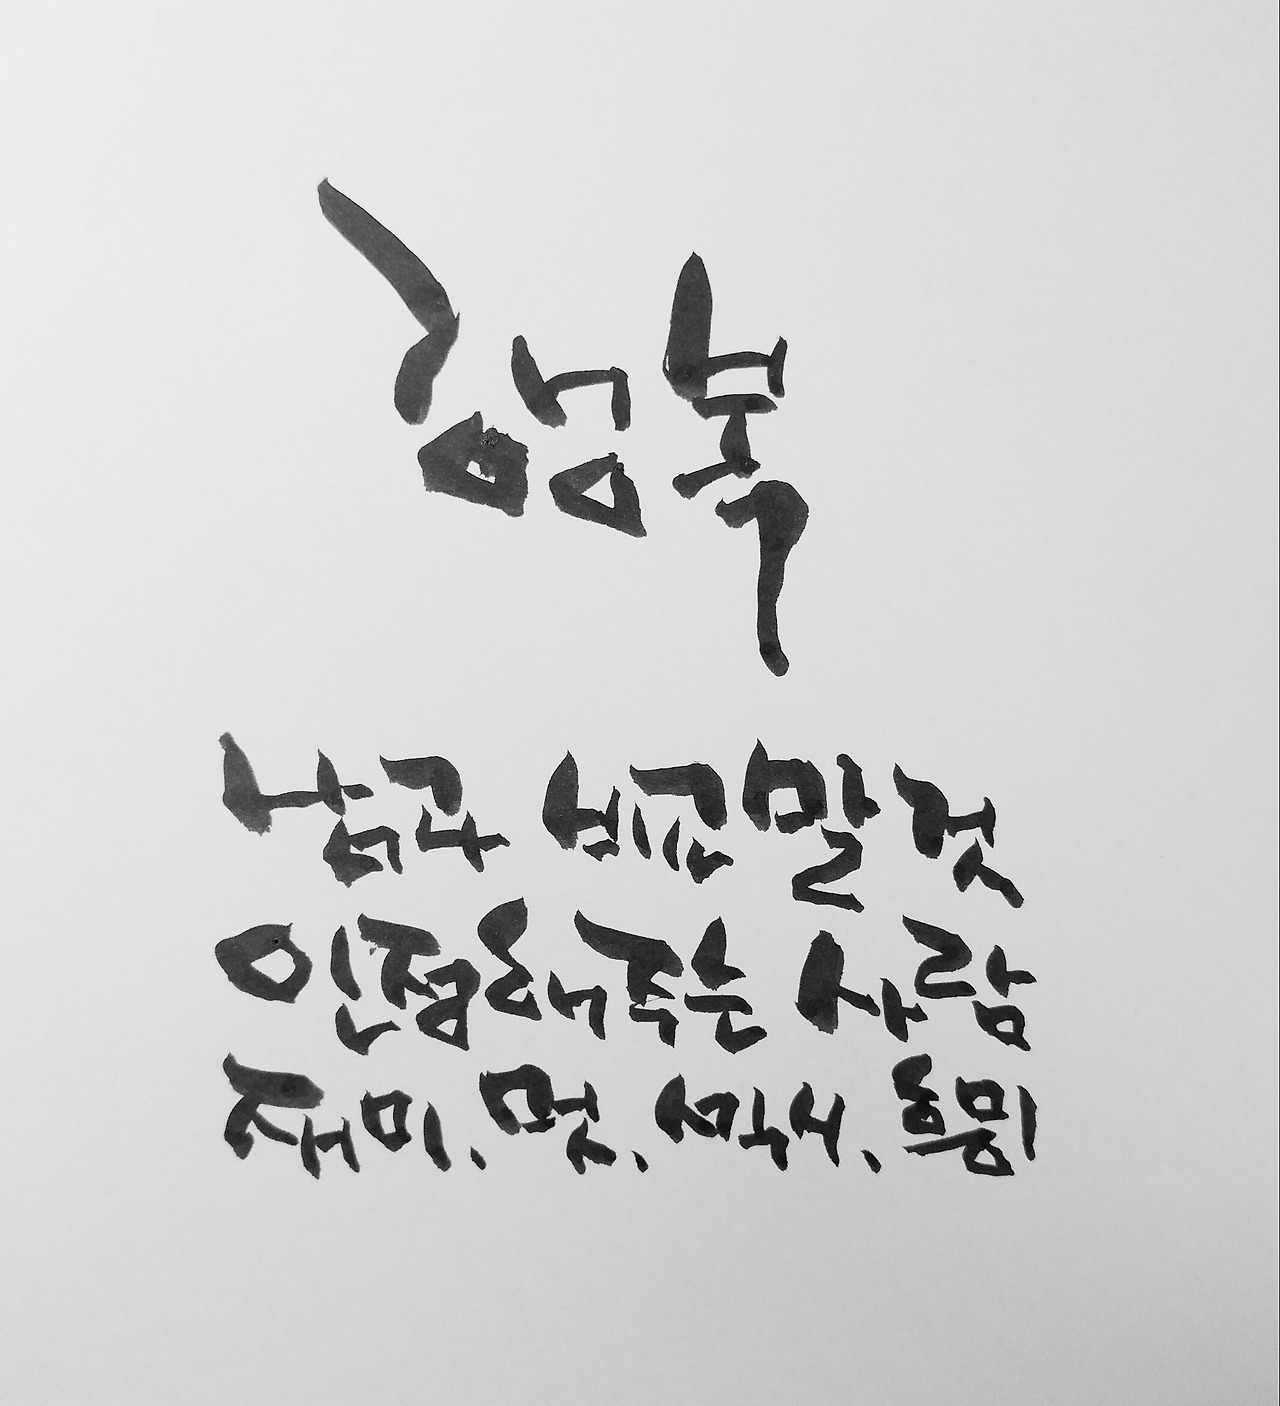 행복
남과 비교말 것
인정해주는 사람
재미, 멋,